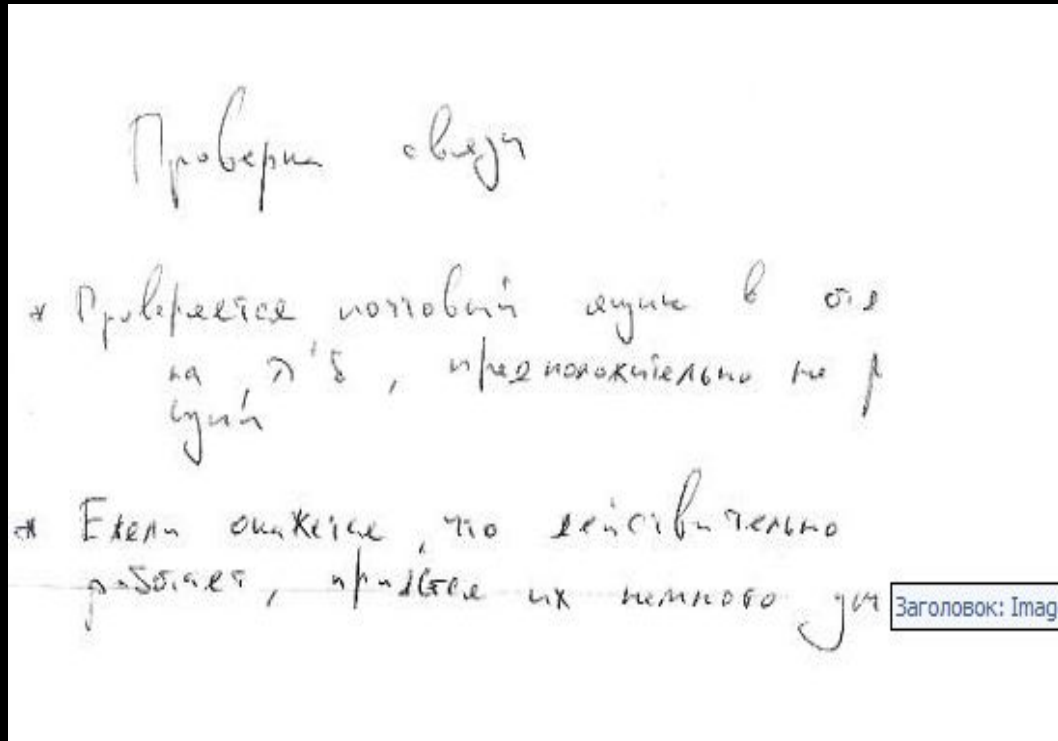 Проверка связи
* Проверяется почтовый ящик в
на , предположительно не
* Ежели окажется, что действительно
работает, придётся их немного
Заголовок: Imag